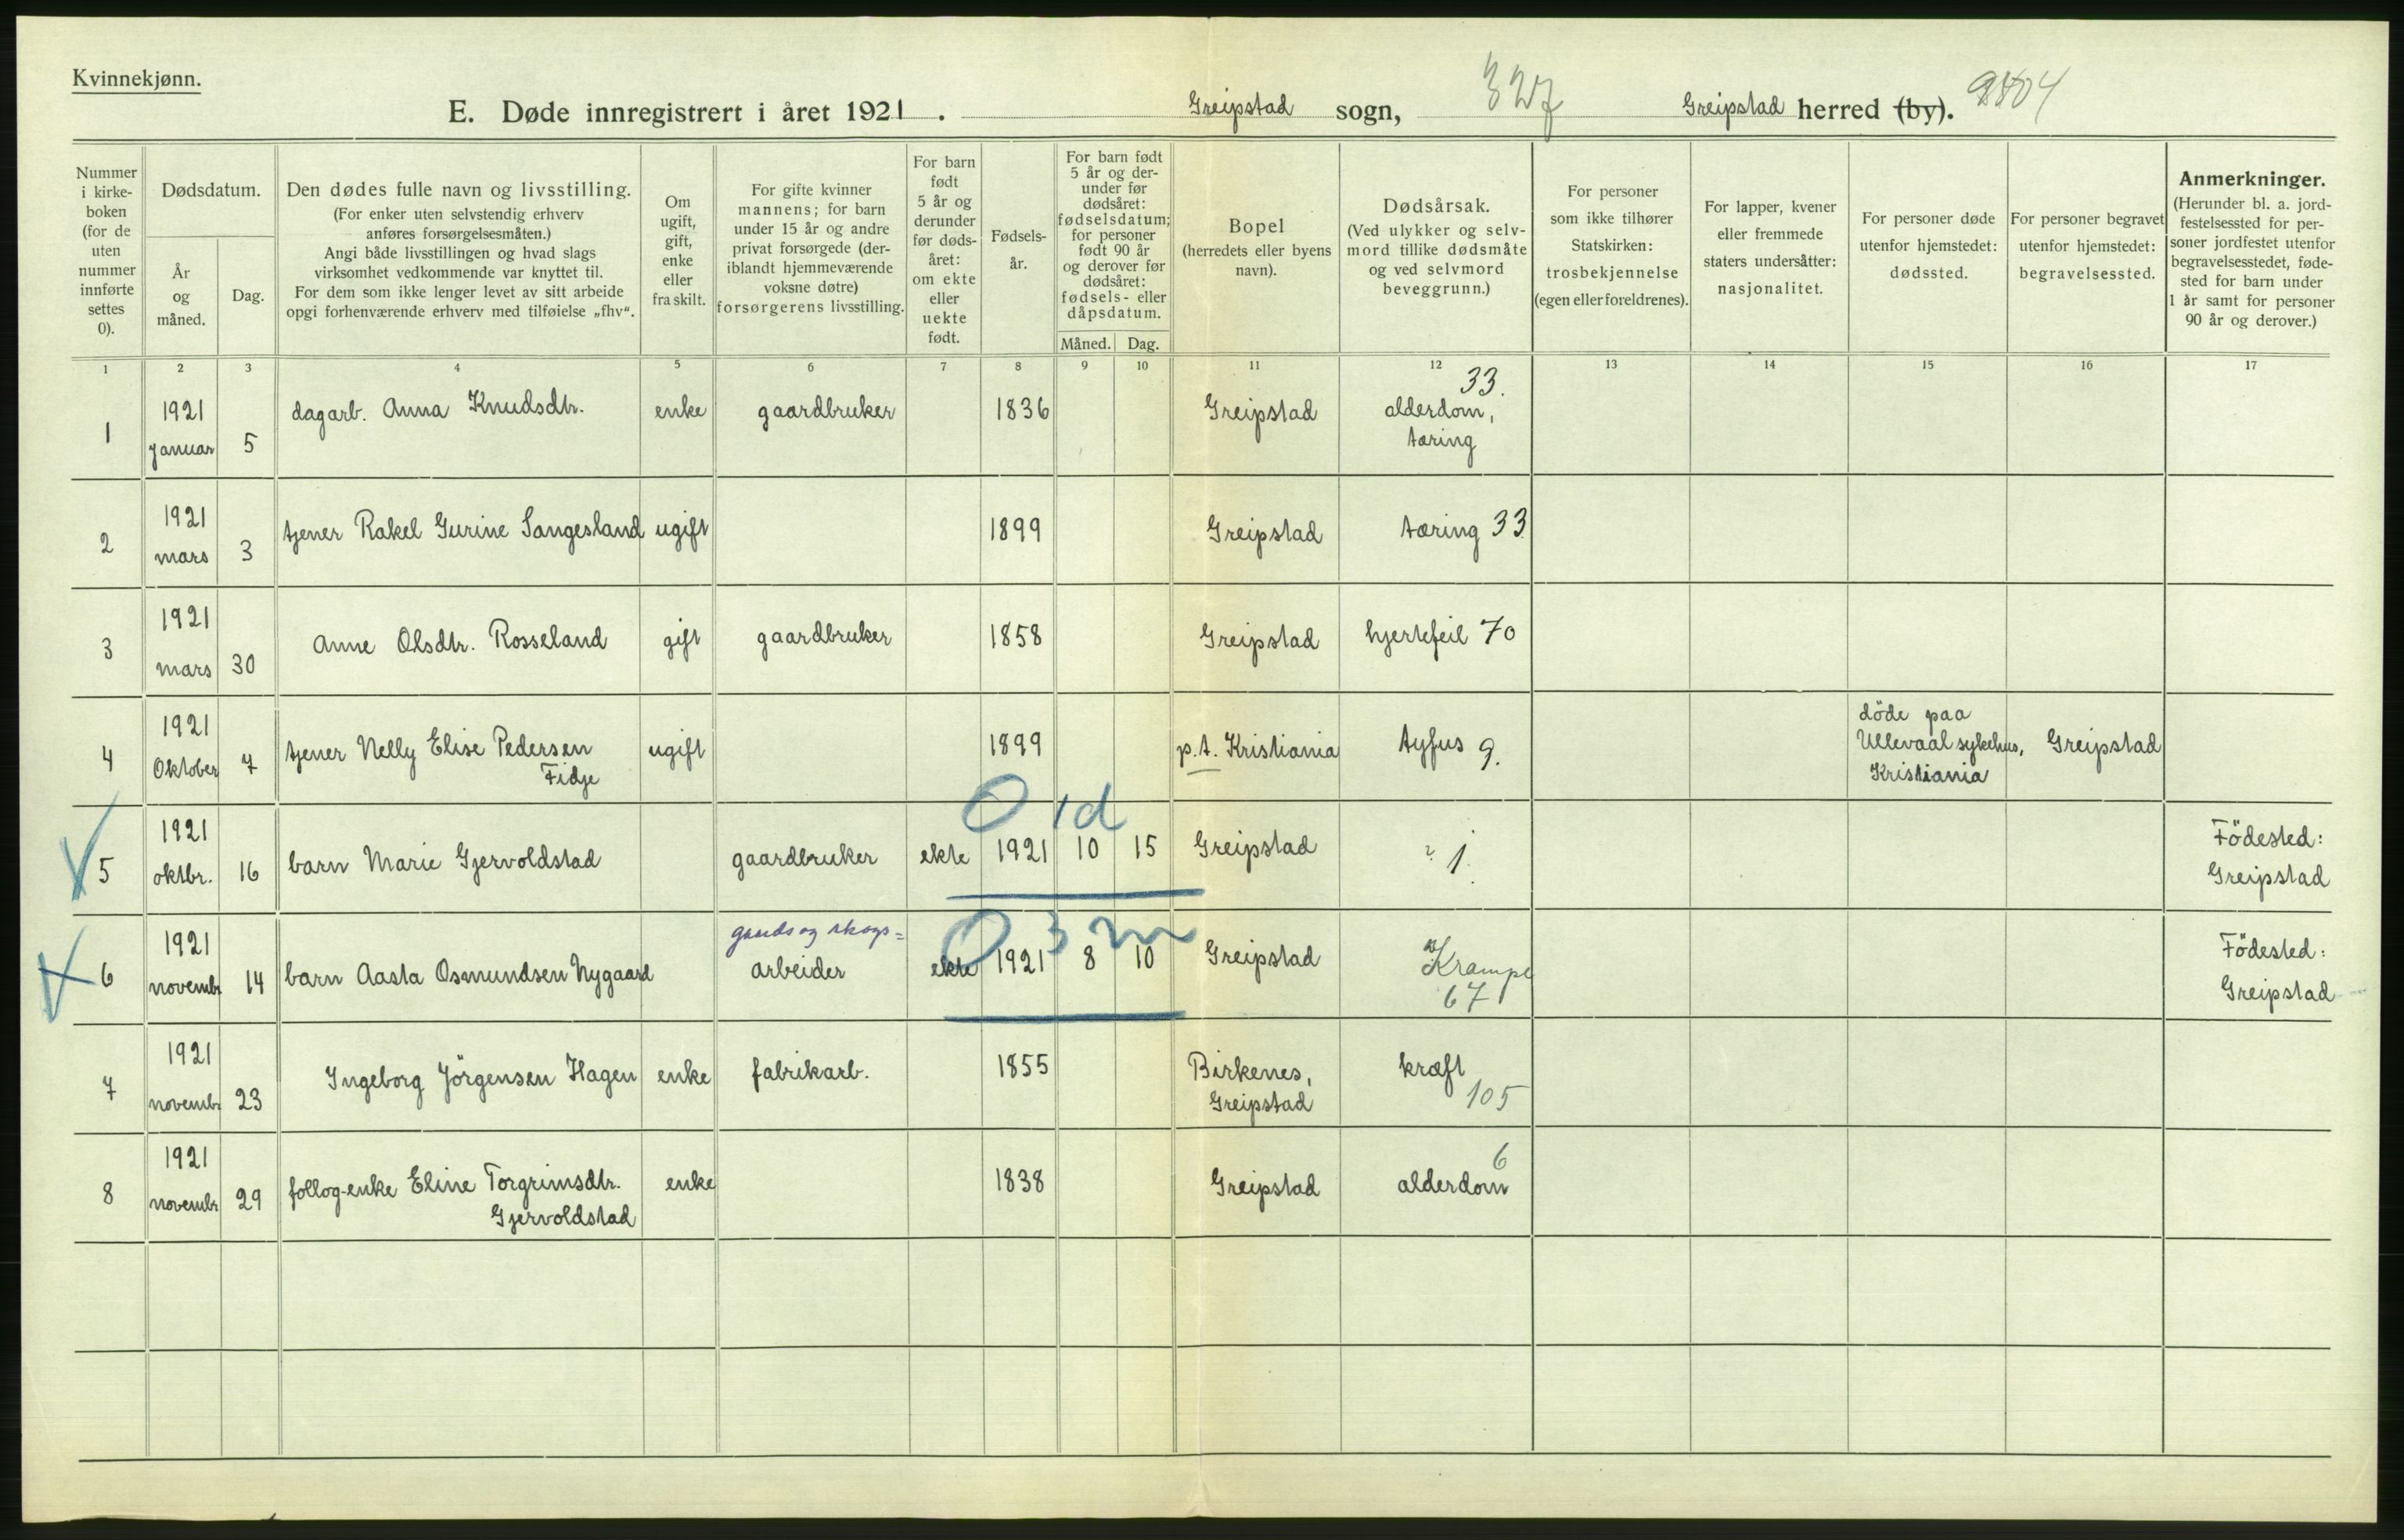 Kvinnekjønn.
E. Døde innregistrert i året 1921. Greipstad sogn, 327 Greipstad herred (by).
Nummer i kirke-boken (for de uten nummer innførte settes 0).
Dødsdatum.
År og måned.
Dag.
Den dødes fulle navn og livsstilling.
(For enker uten selvstendig erhverv anføres forsørgelsesmåten.)
Angi både livsstillingen og hvad slags virksomhet vedkommende var knyttet til.
For dem som ikke lenger levet av sitt arbeide opgi forhenværende erhverv med tilføielse „fhv“.
Om ugift, gift, enke eller fraskilt.
For gifte kvinner mannens; for barn under 15 år og andre privat forsørgede (deriblandt hjemmeværende voksne døtre) forsørgerens livsstilling.
For barn født 5 år og derunder før dødsåret: om ekte eller uekte født.
Fødsels-år.
For barn født 5 år og derunder før dødsåret: fødselsdatum; for personer født 90 år og derover før dødsåret: fødsels- eller dåpsdatum.
Måned. Dag.
Bopel (herredets eller byens navn).
Dødsårsak.
(Ved ulykker og selvmord tillike dødsmåte og ved selvmord beveggrunn.)
For personer som ikke tilhører Statskirken: trosbekjennelse (egen eller foreldrenes).
For lapper, kvener eller fremmede staters undersåtter: nasjonalitet.
For personer døde utenfor hjemstedet: dødssted.
For personer begravet utenfor hjemstedet: begravelsessted.
Anmerkninger.
(Herunder bl. a. jordfestelsessted for personer jordfestet utenfor begravelsesstedet, fødested for barn under 1 år samt for personer 90 år og derover.)
1 2 3 4 5 6 7 8 9 10 11 12 13 14 15 16 17
1 1921 januar 5 dagarb. Anna Knudsdtr. enke gaardbruker 1836 Greipstad alderdom, tæring 33.
2 1921 mars 3 tjener Rakel Gurine Sangesland ugift 1899 Greipstad tæring 33
3 1921 mars 30 Anne Olsdtr. Rosseland gift gaardbruker 1858 Greipstad hjertefeil 70
4 1921 Oktober 7 tjener Nelly Elise Pedersen Fidje ugift 1899 p.t. Kristiania tyfus 9. döde paa Ullevaal sykehus, Kristiania Greipstad
0 1d
5 1921 oktbr. 16 barn Marie Gjervoldstad gaardbruker ekte 1921 10 15 Greipstad ? 1. Födested: Greipstad
0 3 m
6 1921 novembr 14 barn Aasta Osmundsen Nygaard gaards og skogs= arbeider ekte 1921 8 10 Greipstad Krampe 67 Födested: Greipstad
7 1921 novembr 23 Ingeborg Jörgensen Hagen enke fabrikarb. 1855 Birkenes, Greipstad kræft 105
8 1921 novembr 29 follog-enke Eline Torgrimsdtr. Gjervoldstad enke 1838 Greipstad alderdom 6